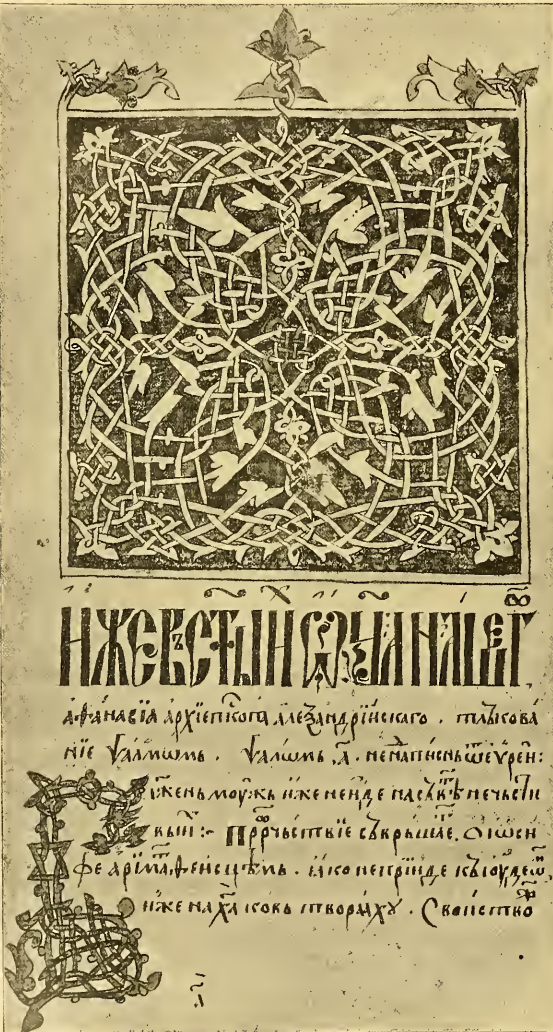 И҆́жевъст҃ы́хи ѡ҆ц҃а на́шег҆
а҆ѳанасїа а҆рхїепⷭ҇копа, а҆леѯандрїи́скаго . тлъкова
нїе ѱалмѡмь . ѱалѡмь .а҃. ненапи́сань ѿ е҆ѵре́и:
Бл҃женьмоу́жь и҆́же неи́де насъвѣ́тъ нечьсти
вы́й :~ Прⷪ҇рчьствїе съвръша́е. О і҆ѡ́си
фе а҆рїмаѳе́исцѣмь . ꙗ҆́ко непрїи́де къ і҆оуде́ѡⷨ,
и҆́же на х҃а ковь творѧ́хꙋ . Свои́ство
а҃